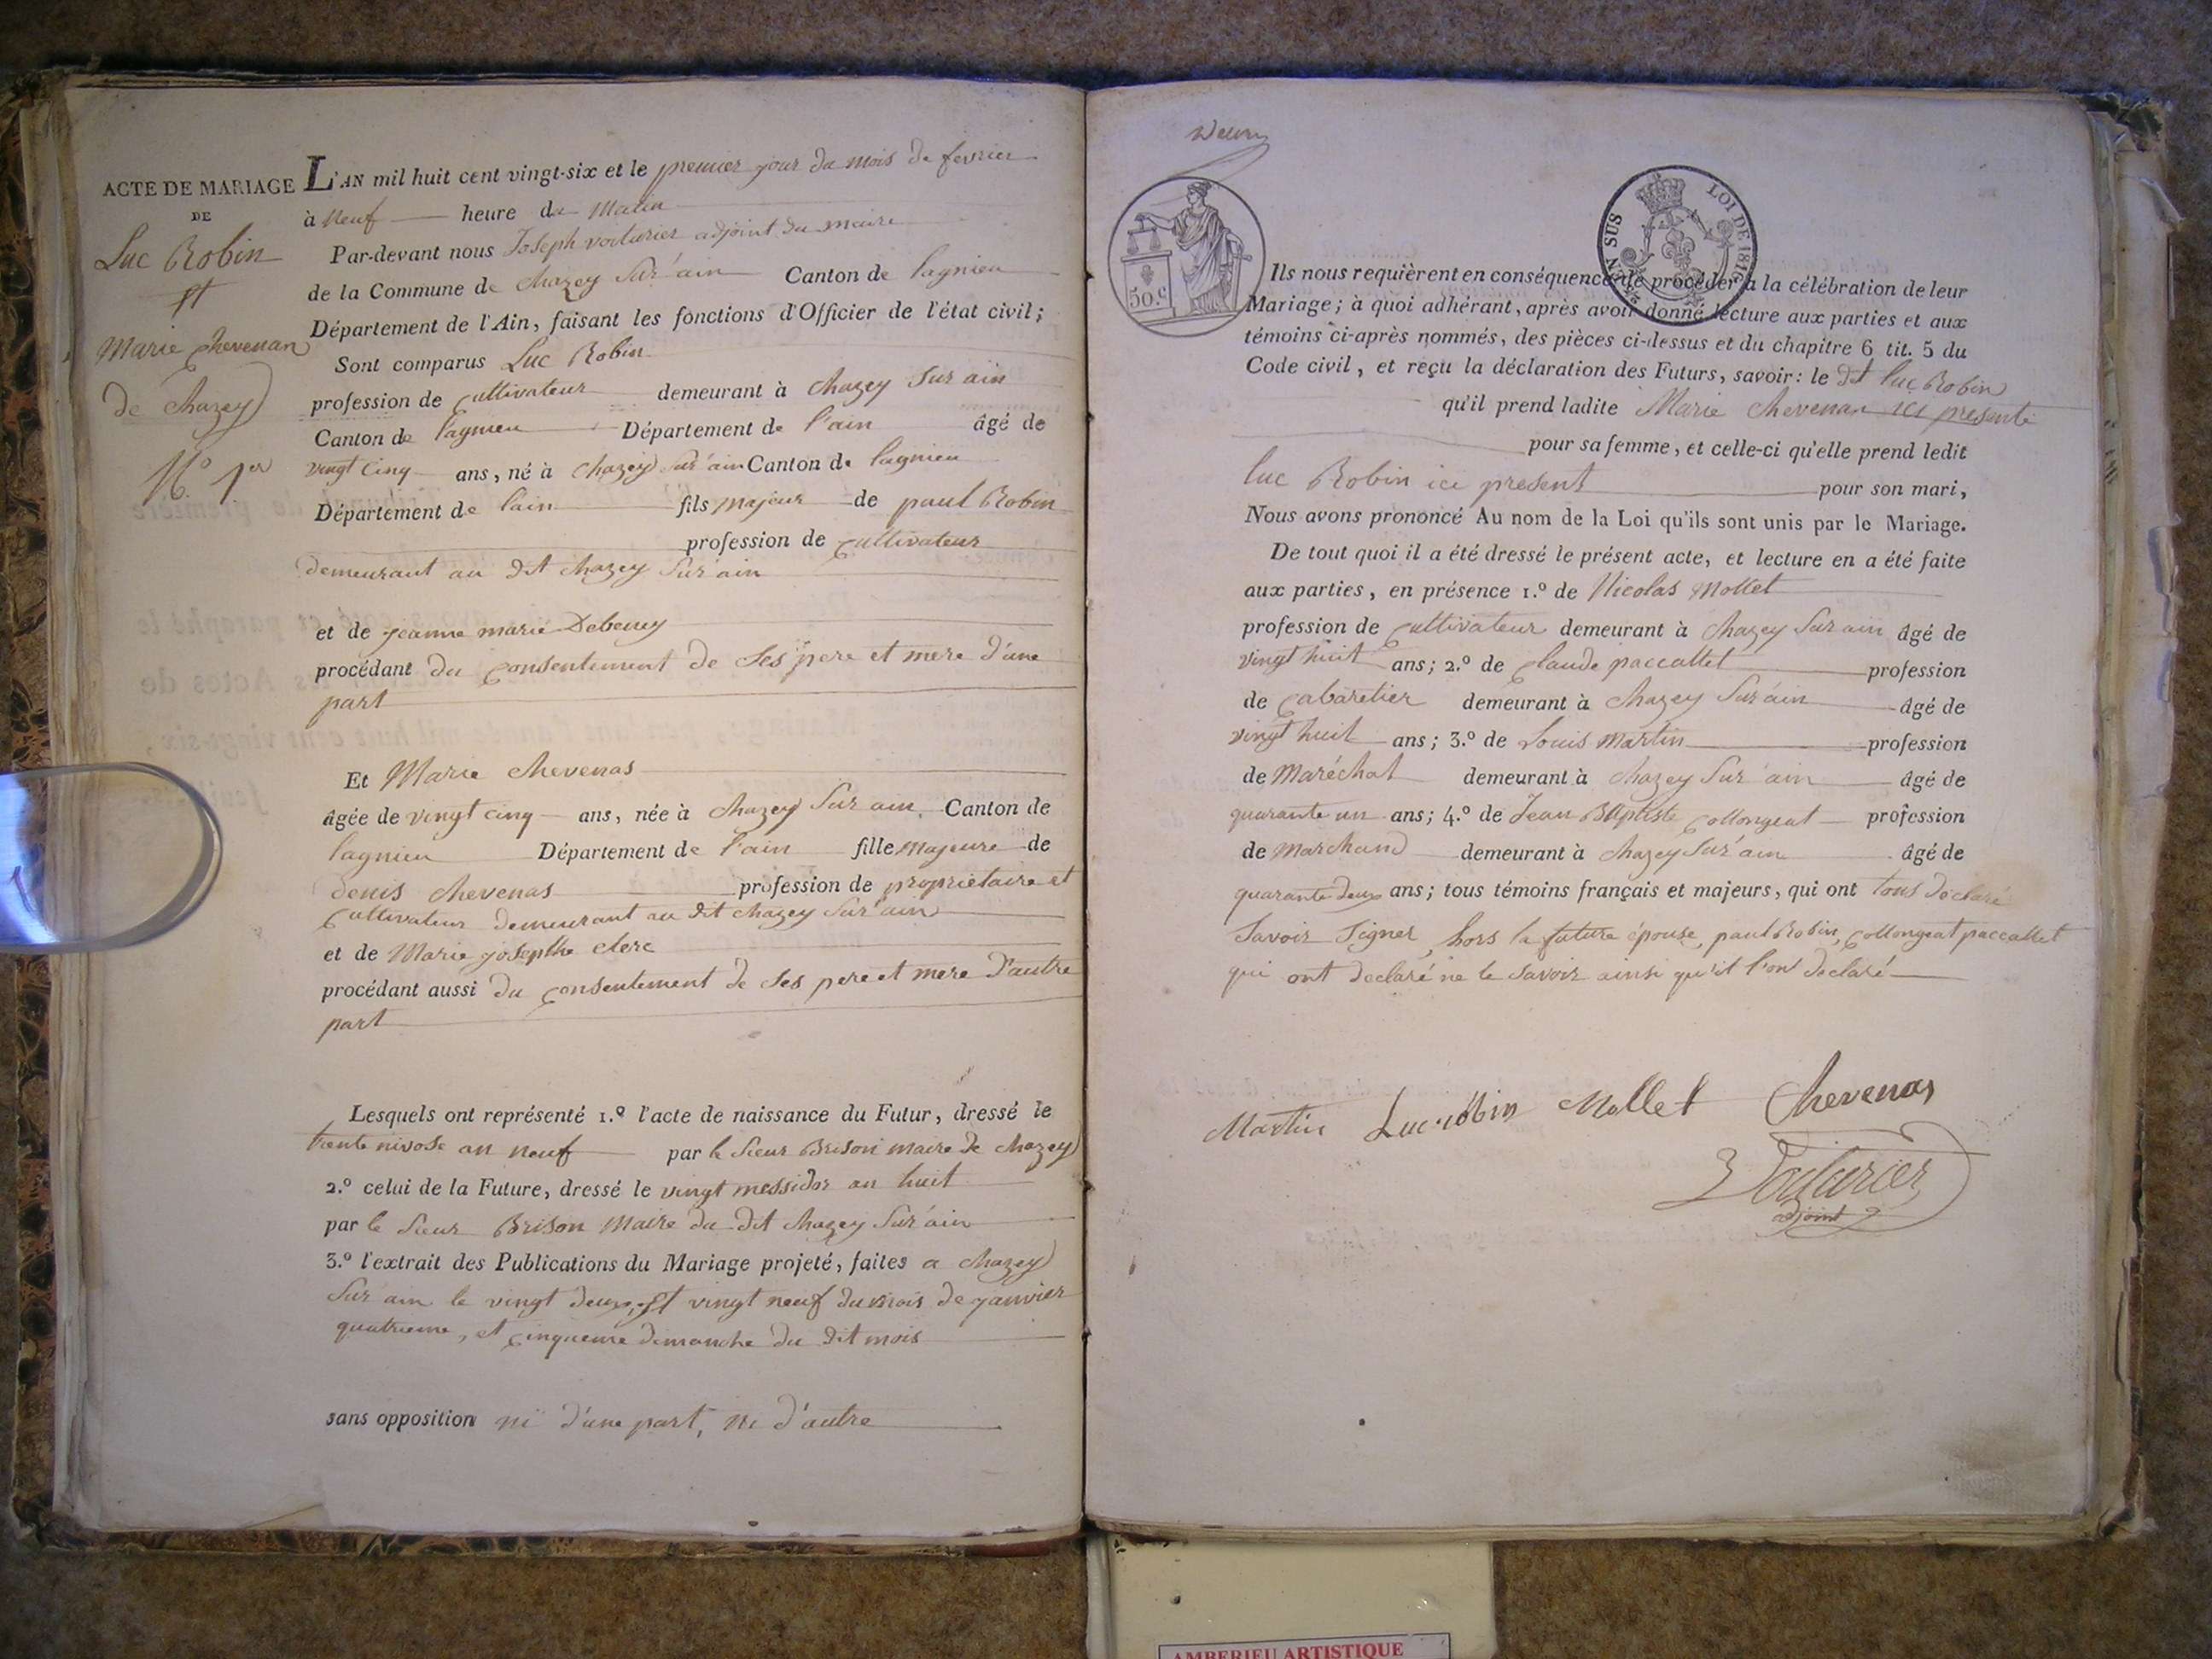 ACTE DE MARIAGE
DE
Luc Robin
Et
Marie Chevenan
de Chazey
N.º 1.er
L'AN mil huit cent vingt-six et le premier jour du mois de fevrier
à neuf heure du matin
Par-devant nous Joseph voiturier adjoint du maire
de la Commune de Chazey Sur ain Canton de lagnieu
Département de l'Ain, faisant les fonctions d'Officier de l'état civil;
Sont comparus Luc Robin
profession de Cultivateur demeurant à Chazey Sur ain
Canton de lagnieu Département de l'ain âgé de
vingt cinq ans, né à Chazey Sur ain Canton de lagnieu
Département de l'ain fils majeur de paul Robin
profession de Cultivateur
demeurant au dit Chazey Sur ain
et de jeanne marie Debeney
procédant du Consentement de Ses pere et mere d'une
part
Et Marie Chevenas
âgée de vingt cinq ans, née à Chazey Sur ain Canton de
lagnieu Département de l'ain fille majeure de
denis Chevenas profession de proprietaire et
Cultivateur demeurant au dit Chazey Sur ain
et de Marie josephe Clerc
procédant aussi du Consentement de Ses pere et mere d'autre
part
Lesquels ont représenté 1.º l'acte de naissance du Futur, dressé le
trente nivose an neuf par le Sieur Brison maire de Chazey
2.º celui de la Future, dressé le vingt messidor an huit
par le Sieur Brison Maire du dit Chazey Sur ain
3.º l'extrait des Publications du Mariage projeté, faites a Chazey
Sur ain le vingt deux, Et vingt neuf du mois de janvier
quatrieme, et Cinquieme dimanche du dit mois
sans opposition ni d'une part, ni d'autre
50.c
EN SUS
LOI DE 1816
Ils nous requièrent en conséquence de procéder à la célébration de leur
Mariage; à quoi adhérant, après avoir donné lecture aux parties et aux
témoins ci-après nommés, des pièces ci-dessus et du chapitre 6 tit. 5 du
Code civil, et reçu la déclaration des Futurs, savoir: le dit luc Robin
qu'il prend ladite Marie Chevenan ici presente
pour sa femme, et celle-ci qu'elle prend ledit
luc Robin ici present pour son mari,
Nous avons prononcé Au nom de la Loi qu'ils sont unis par le Mariage.
De tout quoi il a été dressé le présent acte, et lecture en a été faite
aux parties, en présence 1.º de Nicolas Mollet
profession de Cultivateur demeurant à Chazey Sur ain âgé de
vingt huit ans; 2.º de Claude paccallet profession
de Cabaretier demeurant à Chazey Sur ain âgé de
vingt huit ans; 3.º de Louis Martin profession
de Maréchal demeurant à Chazey Sur ain âgé de
quarante un ans; 4.º de Jean Baptiste Collongeat profession
de Marchand demeurant à Chazey Sur ain âgé de
quarante deux ans; tous témoins français et majeurs, qui ont tous declaré
Savoir Signer hors la future épouse, paul Robin, Collongeat paccallet
qui ont declaré ne le Savoir ainsi qu'il l'ont declaré
Martin Luc robin Mollet Chevenas
Voiturier
adjoint
AMBERIEU ARTISTIQUE